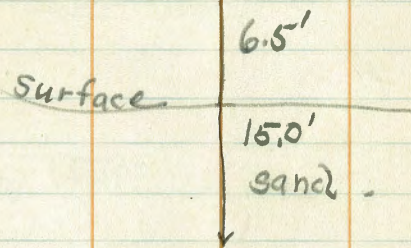 6.5'
surface
15.0'
sand.